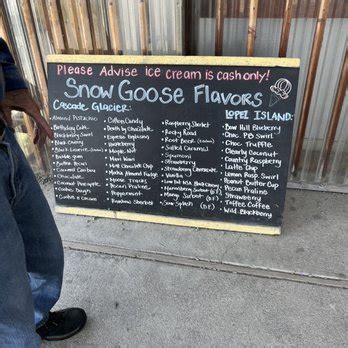 Please Advise Ice cream is cash only!
Snow Goose Flavors
Cascade Glacier:
Almond Pistachio
Birthday Cake
Blackberry Swirl
Black Cherry
Bubble gum
Butter Pecan
Caramel Caribou
Chocolate
Coconut Pineapple
Cookie Dough
Cookies & Cream
Cotton Candy
Death by Chocolate
Espresso Explosion
Huckleberry
Maple Nut
Maui Wowi
Mint Chocolate Chip
Mocha Almond Fudge
Moose Tracks
Pecan Praline
Peppermint
Rainbow Sherbet
Raspberry Sherbet
Rocky Road
Root Beer
Salted Caramel
Spumoni
Strawberry
Strawberry Cheesecake
Vanilla
Black Cherry
Sorbet (DF)
Mango Sorbet (DF)
Splash (DF)
LOPEZ ISLAND:
Bow Hill Blueberry
Choc PB Swirl
Choc Truffle
Clearly Coconut
Country Raspberry
Latte Chip
Lemon Rasp. Swirl
Peanut Butter Cup
Pecan Praline
Strawberry
Toffee Coffee
Wild Blackberry